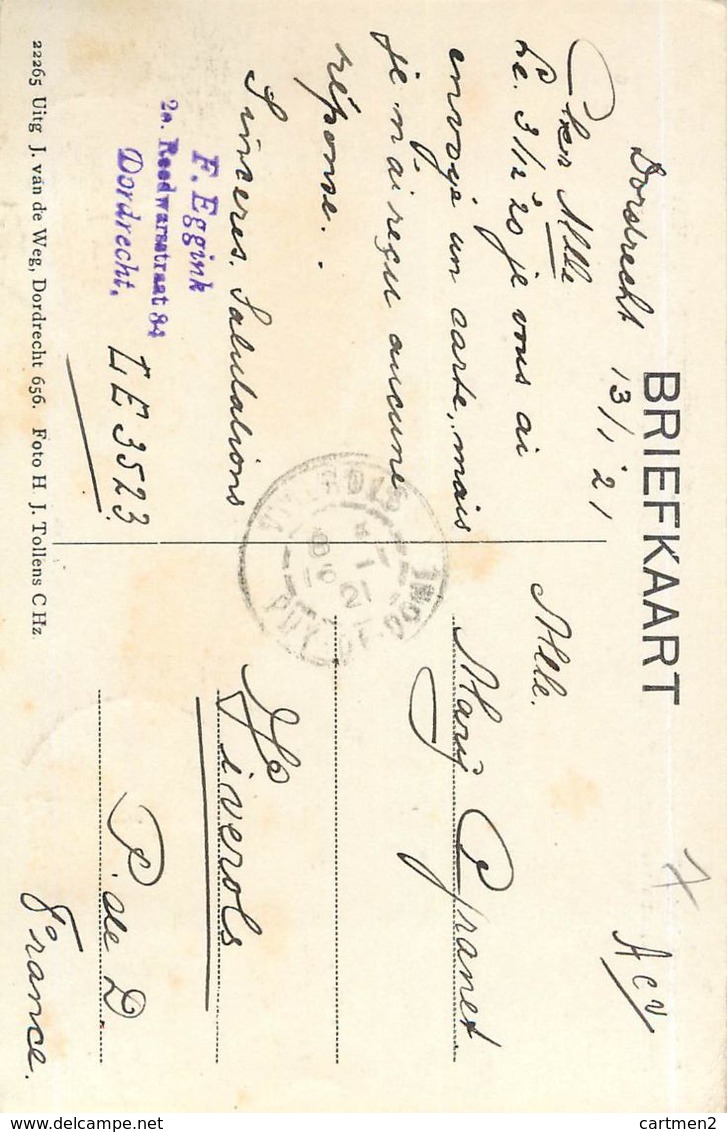 BRIEFKAART
Dordrecht 13/1 '21
Cher Mlle
Le. 3/12 '20 je vous ai
envoyé un carte, mais
je n'ai reçu aucune
réponse.
Sinceres. Salutations
F. Eggink
2e. Reedwarsstraat 84
Dordrecht.
LE 3523
22265 Uitg J. van de Weg, Dordrecht 656. Foto H. J. Tollens C Hz
VIVEROLS
16 -1
21
PUY-DE-DOME
Mlle.
Mary Granet
Viverols
P. de D
France.
delcampe.net
cartmen2